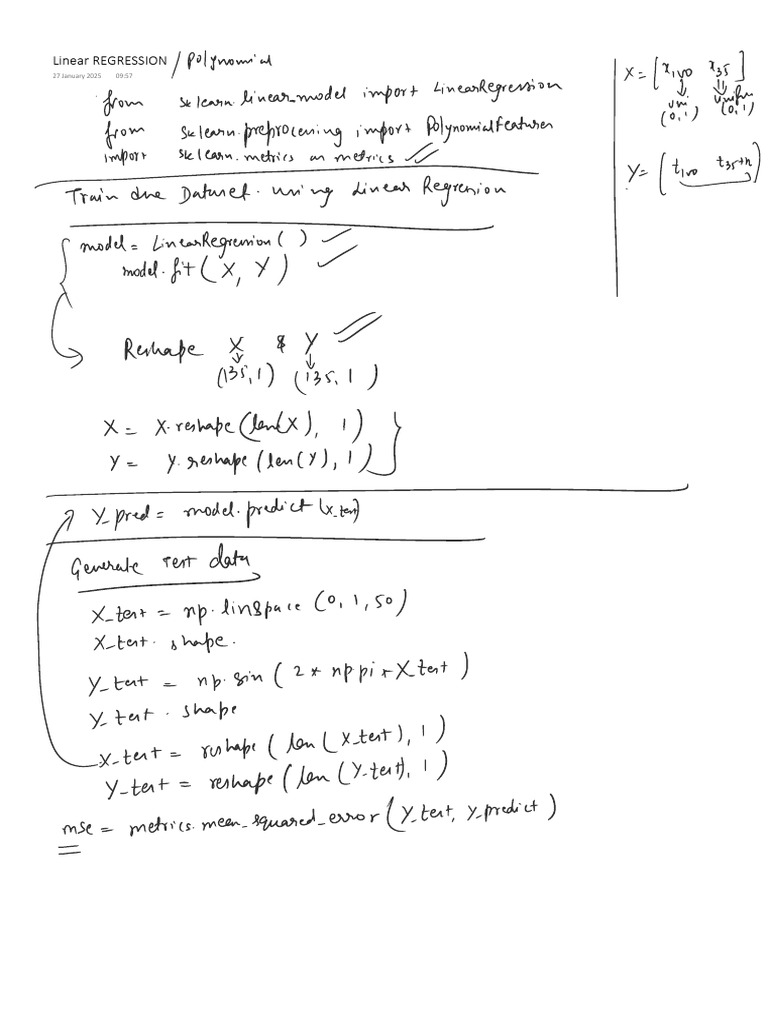 Linear REGRESSION / Polynomial
27 January 2025 09:57
from sklearn.linear_model import LinearRegression
from sklearn.preprocessing import PolynomialFeatures
import sklearn.metrics as metrics
Train the Dataset using Linear Regression
model = LinearRegression ( )
model.fit ( X, Y )
Reshape X & Y
(135, 1) (135, 1)
X = X.reshape (len(X), 1)
Y = Y.reshape (len(Y), 1)
Y_pred = model.predict (x_test)
Generate Test data
X_test = np.linspace (0, 1, 50)
X_test . shape.
Y_test = np.sin ( 2 * np pi * X_test )
Y_test . shape
X_test = reshape ( len ( X_test ), 1 )
Y_test = reshape ( len ( Y_test ), 1 )
mse = metrics.mean_squared_error ( Y_test, Y_predict )
X = [ x100 x35 ]
uni uniform
(0,1) (0,1)
Y = [ t100 t35+n ]